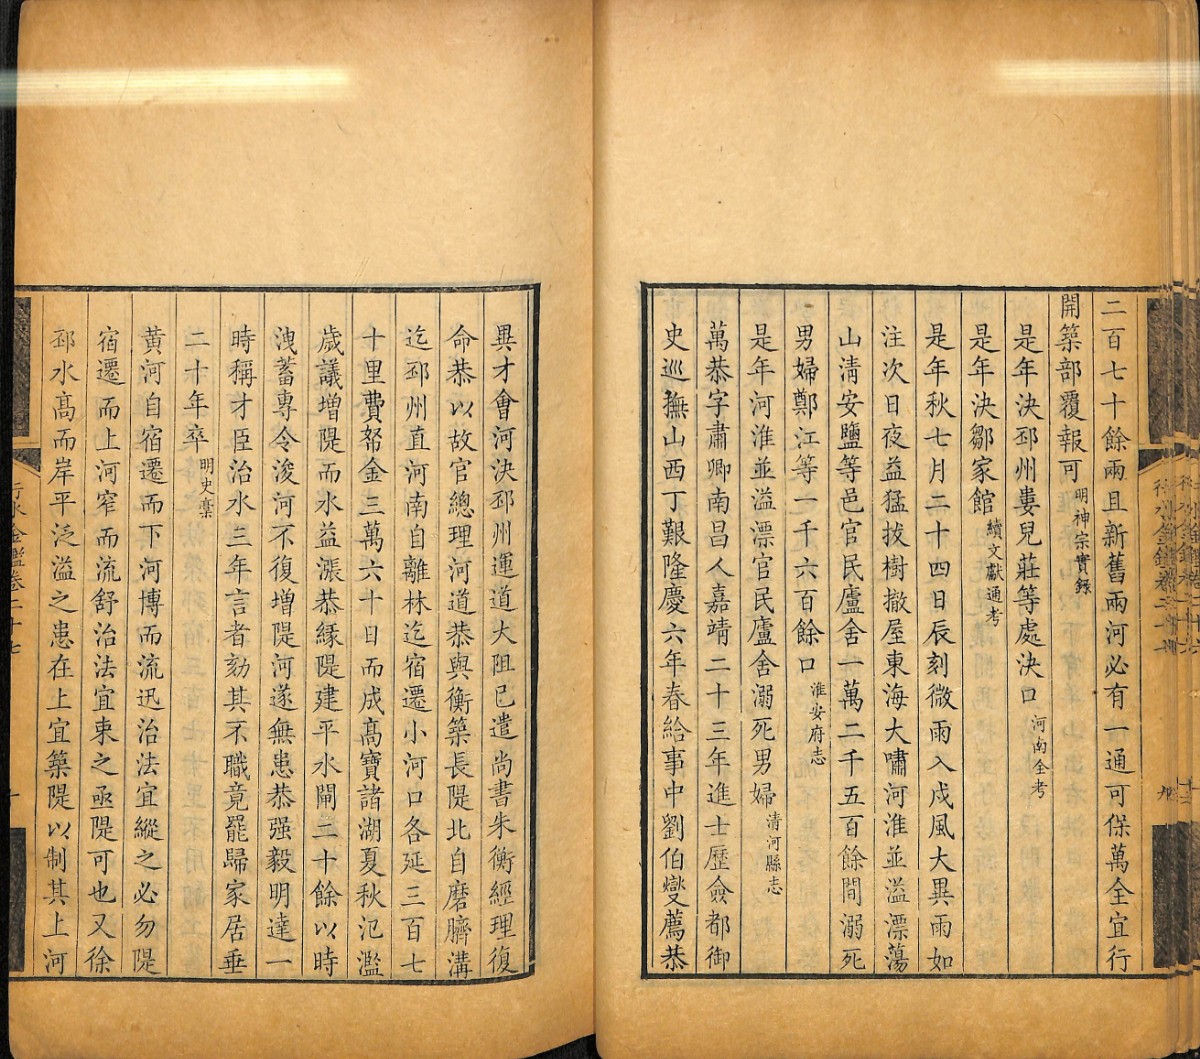 二百七十餘兩且新舊兩河必有一通可保萬全宜行
開築部覆報可明神宗實錄
是年決邳州婁兒莊等處決口河南全考
是年決鄒家館續文獻通考
是年秋七月二十四日辰刻微雨入戍風大異雨如
注次日夜益猛拔樹撤屋東海大嘯河淮並溢漂蕩
山淸安鹽等邑官民廬舍一萬二千五百餘間溺死
男婦鄭江等一千六百餘口淮安府志
是年河淮並溢漂官民廬舍溺死男婦清河縣志
萬恭字肅卿南昌人嘉靖二十三年進士歷僉都御
史巡撫山西丁艱隆慶六年春給事中劉伯燮薦恭
異才會河決邳州運道大阻已遣尚書朱衡經理復
命恭以故官總理河道恭與衡築長隄北自磨臍溝
迄邳州直河南自離林迄宿遷小河口各延三百七
十里費帑金三萬六十日而成高寶諸湖夏秋氾濫
歲議增隄而水益漲恭緣隄建平水閘二十餘以時
洩蓄專令浚河不復增隄河遂無患恭强毅明達一
時稱才臣治水三年言者劾其不職竟罷歸家居垂
二十年卒明史稾
黃河自宿遷而下河博而流迅治法宜縱之必勿隄
宿遷而上河窄而流舒治法宜束之亟隄可也又徐
邳水高而岸平泛溢之患在上宜築隄以制其上河
行水金鑑卷二十七